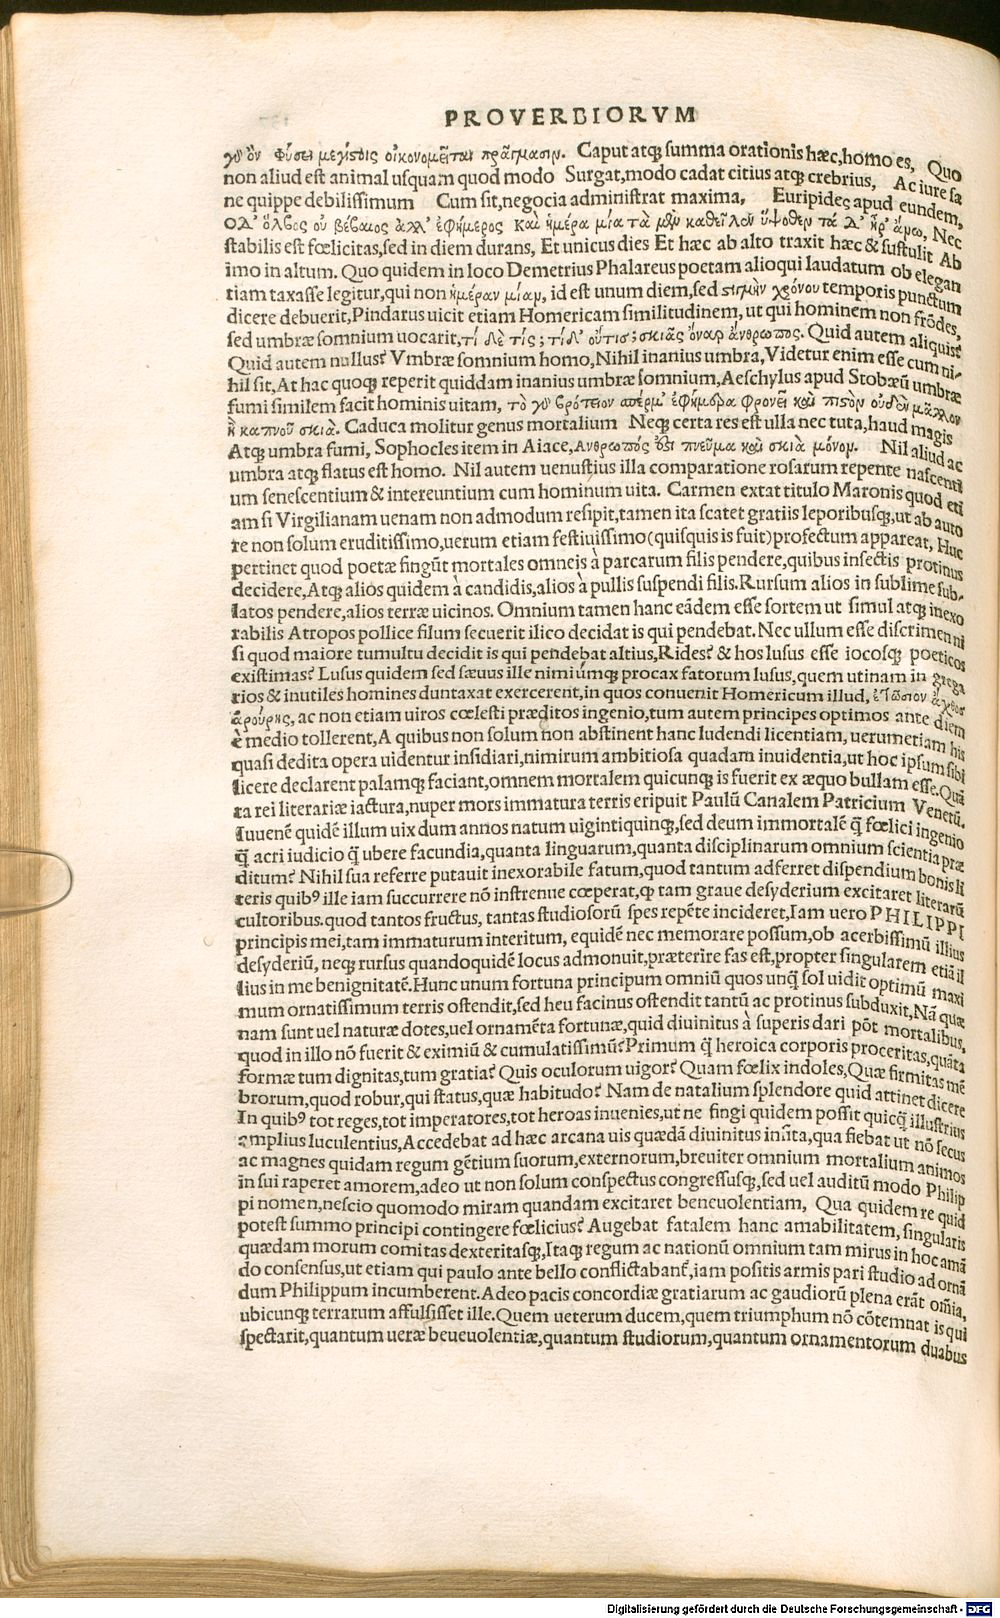 PROVERBIORVM
γὰρ ὂν φύσει μεγίστοις οἰκονομεῖται πράγμασιν. Caput atq; summa orationis hæc, homo es, Quo
non aliud est animal usquam quod modo Surgat, modo cadat citius atq; crebrius, Ac iure sa
ne quippe debilissimum Cum sit, negocia administrat maxima, Euripides apud eundem,
Οδ' ὄλβος οὐ βέβαιος ἀλλ' ἐφήμερος καὶ ἡμέρα μία τὰ μὲν καθεῖλεν ὕψοθεν τὰ δ' ἦρ' ἄνω, Nec
stabilis est fœlicitas, sed in diem durans, Et unicus dies Et hæc ab alto traxit hæc & sustulit Ab
imo in altum. Quo quidem in loco Demetrius Phalareus poetam alioqui laudatum ob elegan
tiam taxasse legitur, qui non ἡμέραν μίαν, id est unum diem, sed στιγμὴν χρόνου temporis punctum
dicere debuerit, Pindarus uicit etiam Homericam similitudinem, ut qui hominem non frõdes,
sed umbræ somnium uocarit, τί δὲ τίς; τί δ' οὔτις; σκιᾶς ὄναρ ἄνθρωπος. Quid autem aliquis?
Quid autem nullus? Vmbræ somnium homo, Nihil inanius umbra, Videtur enim esse cum ni-
hil sit, At hac quoq; reperit quiddam inanius umbræ somnium, Aeschylus apud Stobæũ umbræ
fumi similem facit hominis uitam, τὸ γὰρ βρότειον σπέρμ' ἐφήμερα φρονεῖ καὶ πιστὸν οὐδὲν μᾶλλον
ἢ καπνοῦ σκιὰ. Caduca molitur genus mortalium Neq; certa res est ulla nec tuta, haud magis
Atq; umbra fumi, Sophocles item in Aiace, Ανθρωπός ἐστι πνεῦμα καὶ σκιὰ μόνον. Nil aliud ac
umbra atq; flatus est homo. Nil autem uenustius illa comparatione rosarum repente nascenti
um senescentium & intereuntium cum hominum uita. Carmen extat titulo Maronis quod eti
am si Virgilianam uenam non admodum resipit, tamen ita scatet gratiis leporibusq;, ut ab auto
re non solum eruditissimo, uerum etiam festiuissimo (quisquis is fuit) profectum appareat, Huc
pertinet quod poetæ fingũt mortales omneis à parcarum filis pendere, quibus insectis protinus
decidere, Atq; alios quidem à candidis, alios à pullis suspendi filis. Rursum alios in sublime sub-
latos pendere, alios terræ uicinos. Omnium tamen hanc eãdem esse sortem ut simul atq; inexo
rabilis Atropos pollice filum secuerit ilico decidat is qui pendebat. Nec ullum esse discrimen ni
si quod maiore tumultu decidit is qui pendebat altius, Rides? & hos lusus esse iocosq; poeticos
existimas? Lusus quidem sed sæuus ille nimiúmq; procax fatorum lusus, quem utinam in grega
rios & inutiles homines duntaxat exercerent, in quos conuenit Homericum illud, ἐτώσιον ἄχθος
ἀρούρης, ac non etiam uiros cœlesti præditos ingenio, tum autem principes optimos ante diem
è medio tollerent, A quibus non solum non abstinent hanc ludendi licentiam, uerumetiam his
quasi dedita opera uidentur insidiari, nimirum ambitiosa quadam inuidentia, ut hoc ipsum sibi
licere declarent palamq; faciant, omnem mortalem quicunq; is fuerit ex æquo bullam esse. Quã
ta rei literariæ iactura, nuper mors immatura terris eripuit Paulũ Canalem Patricium Venetũ.
Iuuenẽ quidẽ illum uix dum annos natum uigintiquinq;, sed deum immortalẽ q̃ fœlici ingenio
q̃ acri iudicio q̃ ubere facundia, quanta linguarum, quanta disciplinarum omnium scientia præ
ditum? Nihil sua referre putauit inexorabile fatum, quod tantum adferret dispendium bonis li
teris quibꝰ ille iam succurrere nõ instrenue cœperat, ꝙ tam graue desyderium excitaret literarũ
cultoribus. quod tantos fructus, tantas studiosorũ spes repẽte incideret, Iam uero PHILIPPI
principis mei, tam immaturum interitum, equidẽ nec memorare possum, ob acerbissimũ illius
desyderiũ, neq; rursus quandoquidẽ locus admonuit, præterire fas est, propter singularem etiã il
lius in me benignitatẽ. Hunc unum fortuna principum omniũ quos unq̃ sol uidit optimũ maxi
mum ornatissimum terris ostendit, sed heu facinus ostendit tantũ ac protinus subduxit, Nã quæ
nam sunt uel naturæ dotes, uel ornamẽta fortunæ, quid diuinitus à superis dari põt mortalibus,
quod in illo nõ fuerit & eximiũ & cumulatissimũ? Primum q̃ heroica corporis proceritas, quãta
formæ tum dignitas, tum gratia? Quis oculorum uigor? Quam fœlix indoles, Quæ firmitas mẽ
brorum, quod robur, qui status, quæ habitudo? Nam de natalium splendore quid attinet dicere
In quibꝰ tot reges, tot imperatores, tot heroas inuenies, ut ne fingi quidem possit quicq̃ illustrius
amplius luculentius, Accedebat ad hæc arcana uis quædã diuinitus inſita, qua fiebat ut nõ secus
ac magnes quidam regum gẽtium suorum, externorum, breuiter omnium mortalium animos
in sui raperet amorem, adeo ut non solum conspectus congressusq;, sed uel auditũ modo Philip
pi nomen, nescio quomodo miram quandam excitaret beneuolentiam, Qua quidem re quid
potest summo principi contingere fœlicius? Augebat fatalem hanc amabilitatem, singularis
quædam morum comitas dexteritasq;, Itaq; regum ac nationũ omnium tam mirus in hoc amã
do consensus, ut etiam qui paulo ante bello conflictabant̃, iam positis armis pari studio ad ornã
dum Philippum incumberent. Adeo pacis concordiæ gratiarum ac gaudiorũ plena erãt om̃ia,
ubicunq; terrarum affulsisset ille. Quem ueterum ducem, quem triumphum nõ cõtemnat is qui
spectarit, quantum ueræ beueuolentiæ, quantum studiorum, quantum ornamentorum duabus
Digitalisierung gefördert durch die Deutsche Forschungsgemeinschaft - DFG